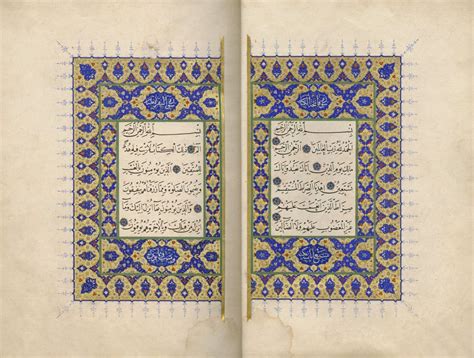 بسم الله الرحمن الرحيم
الحمد لله رب العالمين الرحمن الرحيم
ملك يوم الدين اياك نعبد واياك
نستعين اهدنا الصراط المستقيم
صراط الذين انعمت عليهم غير
المغضوب عليهم ولا الضالين
بسم الله الرحمن الرحيم
الم ذلك الكتاب لا ريب فيه هدى
للمتقين الذين يؤمنون بالغيب
ويقيمون الصلوة ومما رزقناهم ينفقون
والذين يؤمنون بما انزل اليك وما
انزل من قبلك وبالاخرة هم يوقنون